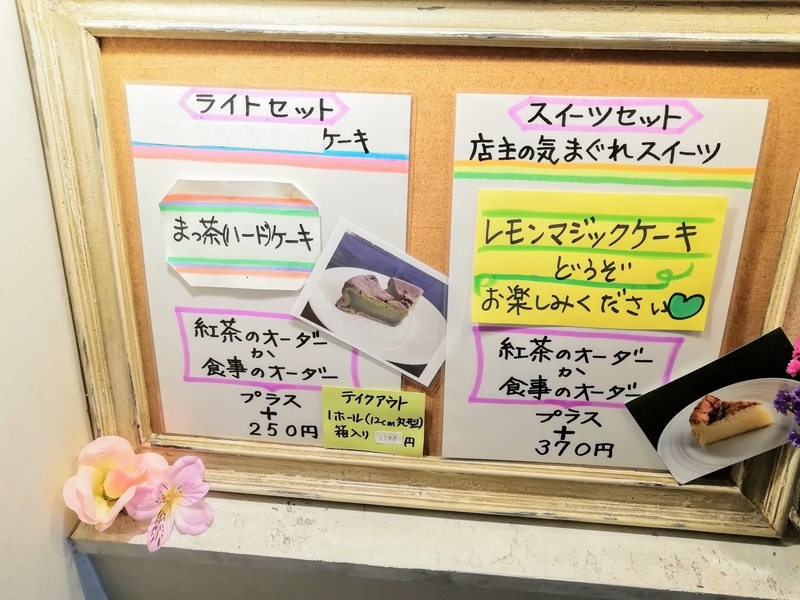 ライトセット
ケーキ
まっ茶(ハード)ケーキ
紅茶のオーダー
か
食事のオーダー
プラス
+
250円
テイクアウト
1ホール(12cm丸型)
箱入り 1100円
スイーツセット
店主の気まぐれスイーツ
レモンマジックケーキ
どうぞ
お楽しみください
紅茶のオーダー
か
食事のオーダー
プラス
+
370円